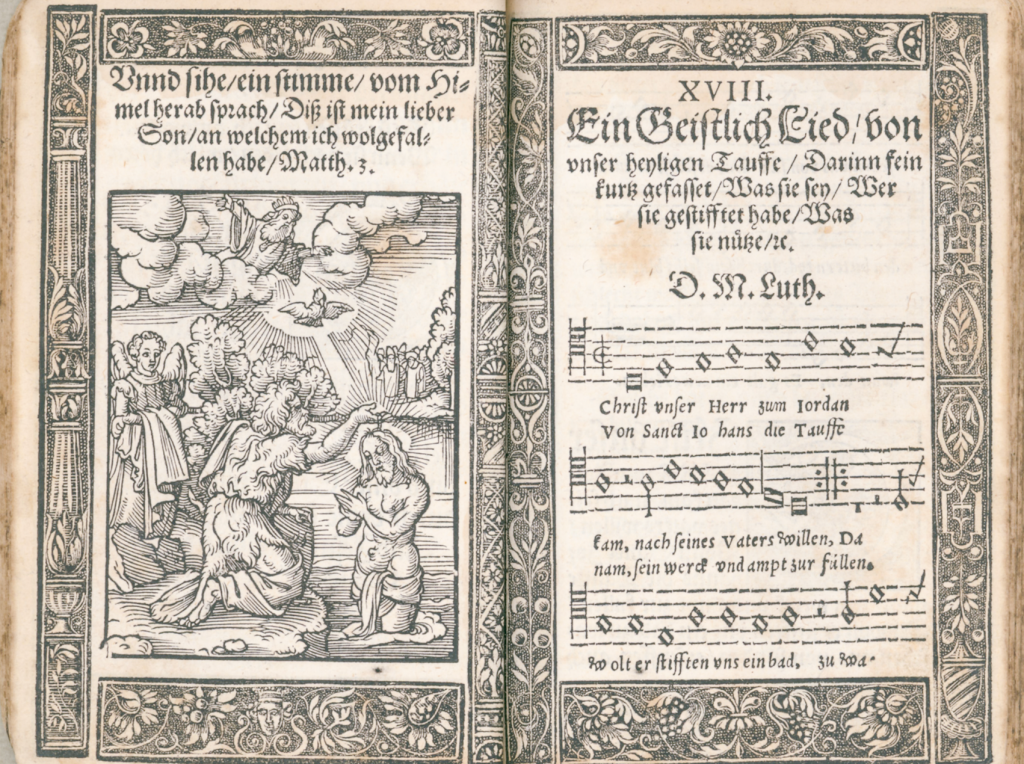 Vnnd sihe/ein stimme/ vom Hi-
mel herab sprach/Diß ist mein lieber
Son/an welchem ich wolgefal-
len habe/Matth. 3.
XVIII.
Ein Geistlich Lied/von
vnser heyligen Tauffe/Darinn fein
kurtz gefasset/Was sie sey/Wer
sie gestifftet habe/Was
sie nütze/ꝛc.
D. M. Luth.
Christ vnser Herr zum Iordan
Von Sanct Io hans die Tauffe
kam, nach seines Vaters willen, Da
nam, sein werck vnd ampt zur füllen.
wolt er stifften vns ein bad, zu wa-